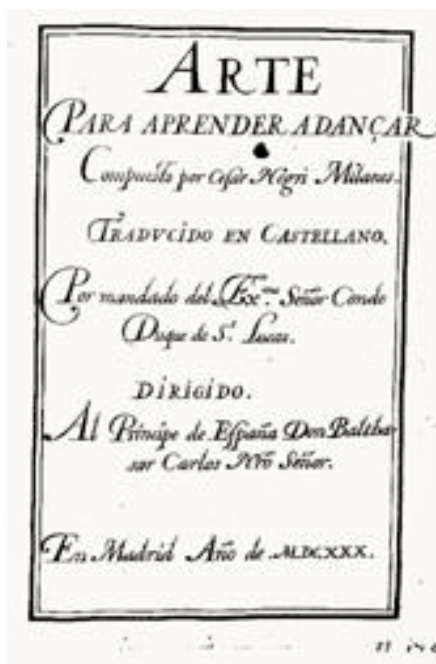 ARTE
PARA APRENDER A DANÇAR
Compuesto por Cesar Negri Milanes.
TRADVCIDO EN CASTELLANO.
Por mandado del Exmo. Señor Conde
Duque de St. Lucar.
DIRIGIDO.
Al Principe de España Don Baltha
sar Carlos Nro Señor.
En Madrid Año de MDCXXX.